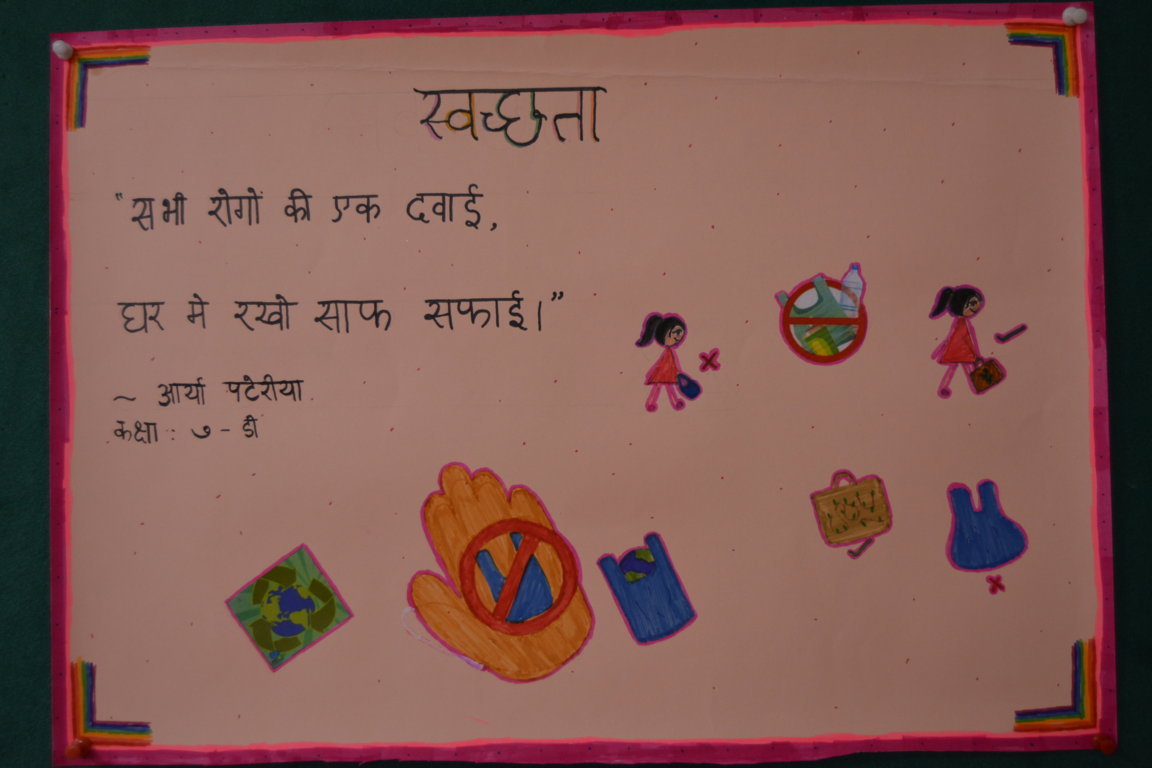 स्वच्छता
"सभी रोगों की एक दवाई,
घर मे रखो साफ सफाई।"
~ आर्या पटेरीया
कक्षा : ७ - डी